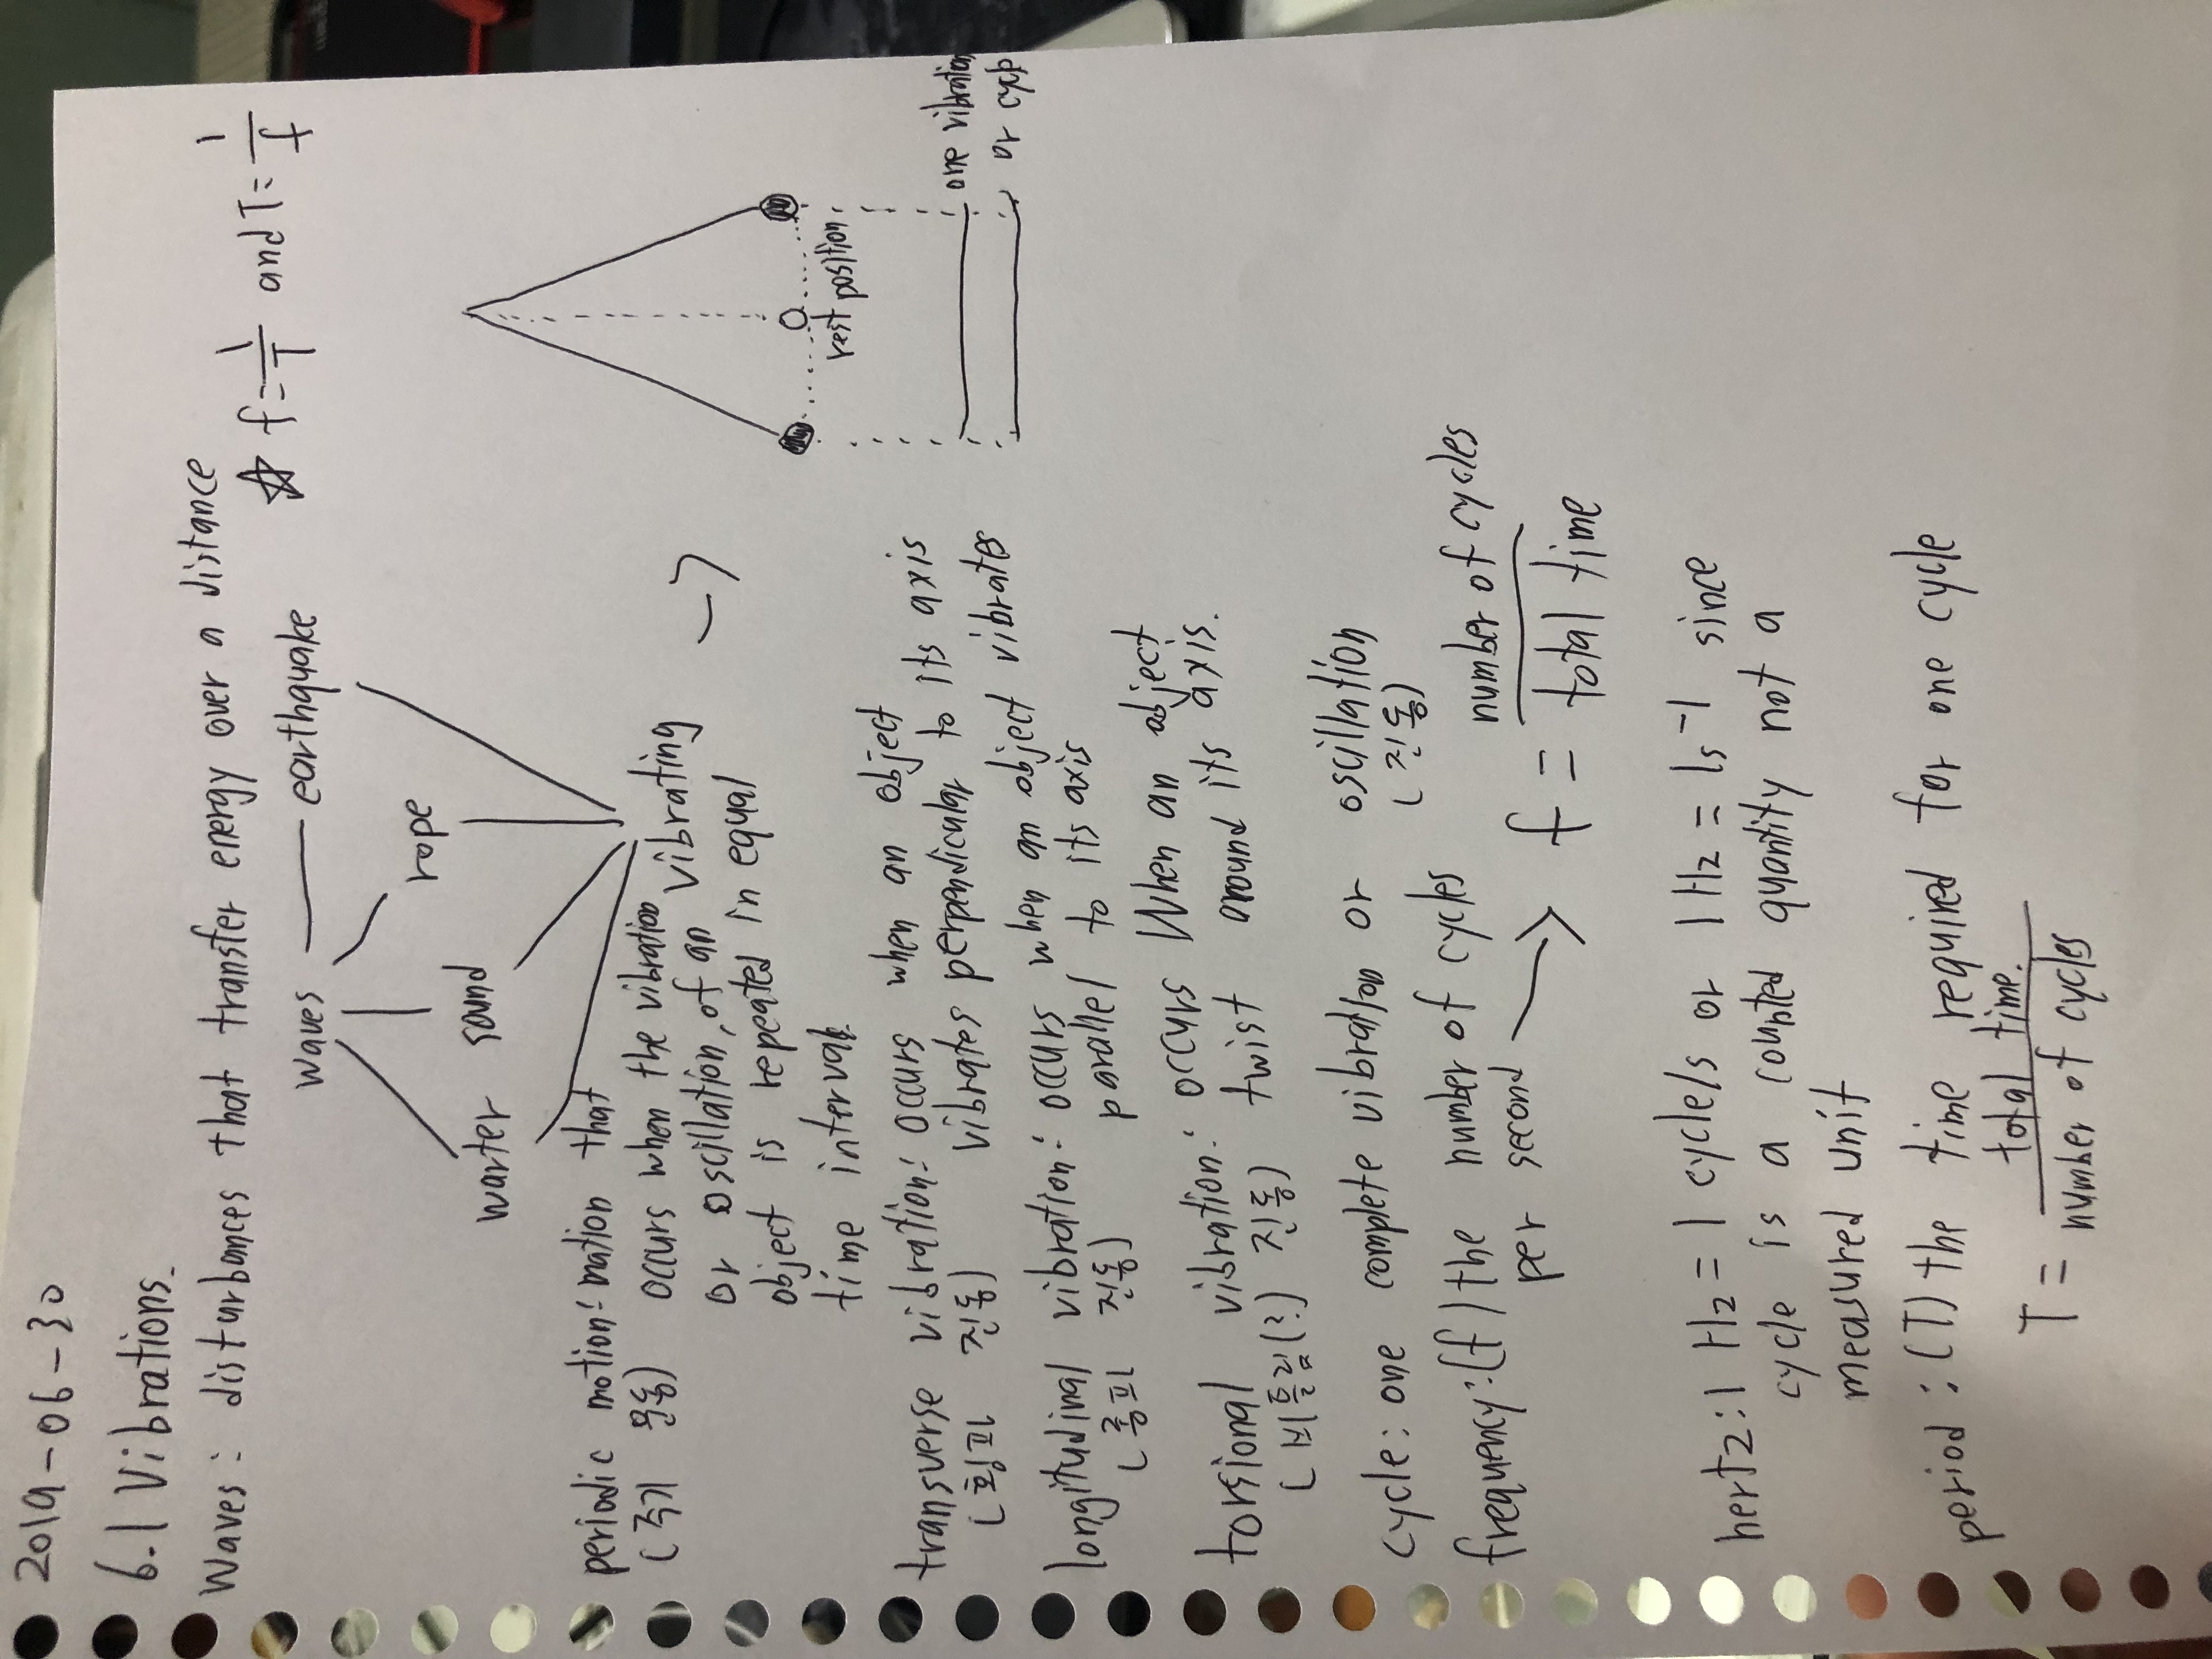 2019-06-30
6.1 Vibrations.
waves: disturbances that transfer energy over a distance
☆ f = 1/T and T = 1/f
waves
earthquake
rope
sound
warter
periodic motion: motion that
(주기 운동)
occurs when the vibration
or oscillation, of an vibrating
object is repeated in equal
time interval
→
rest position
one vibration
or cycle
transverse vibration: occurs when an object
(횡파 진동)
vibrates perpendicular to its axis
longitudinal vibration: occurs when an object vibrates
(종파 진동)
parallel to its axis
torsional vibration: occurs When an object
(비틀림(?) 진동)
twist around its axis.
cycle: one complete vibration or oscillation
(진동)
frequency: (f) the number of cycles
per second → f = number of cycles / total time
hertz: 1 Hz = 1 cycle/s or 1 Hz = 1s⁻¹ since
cycle is a counted quantity not a
measured unit
period: (T) the time required for one cycle
T = total time. / number of cycles